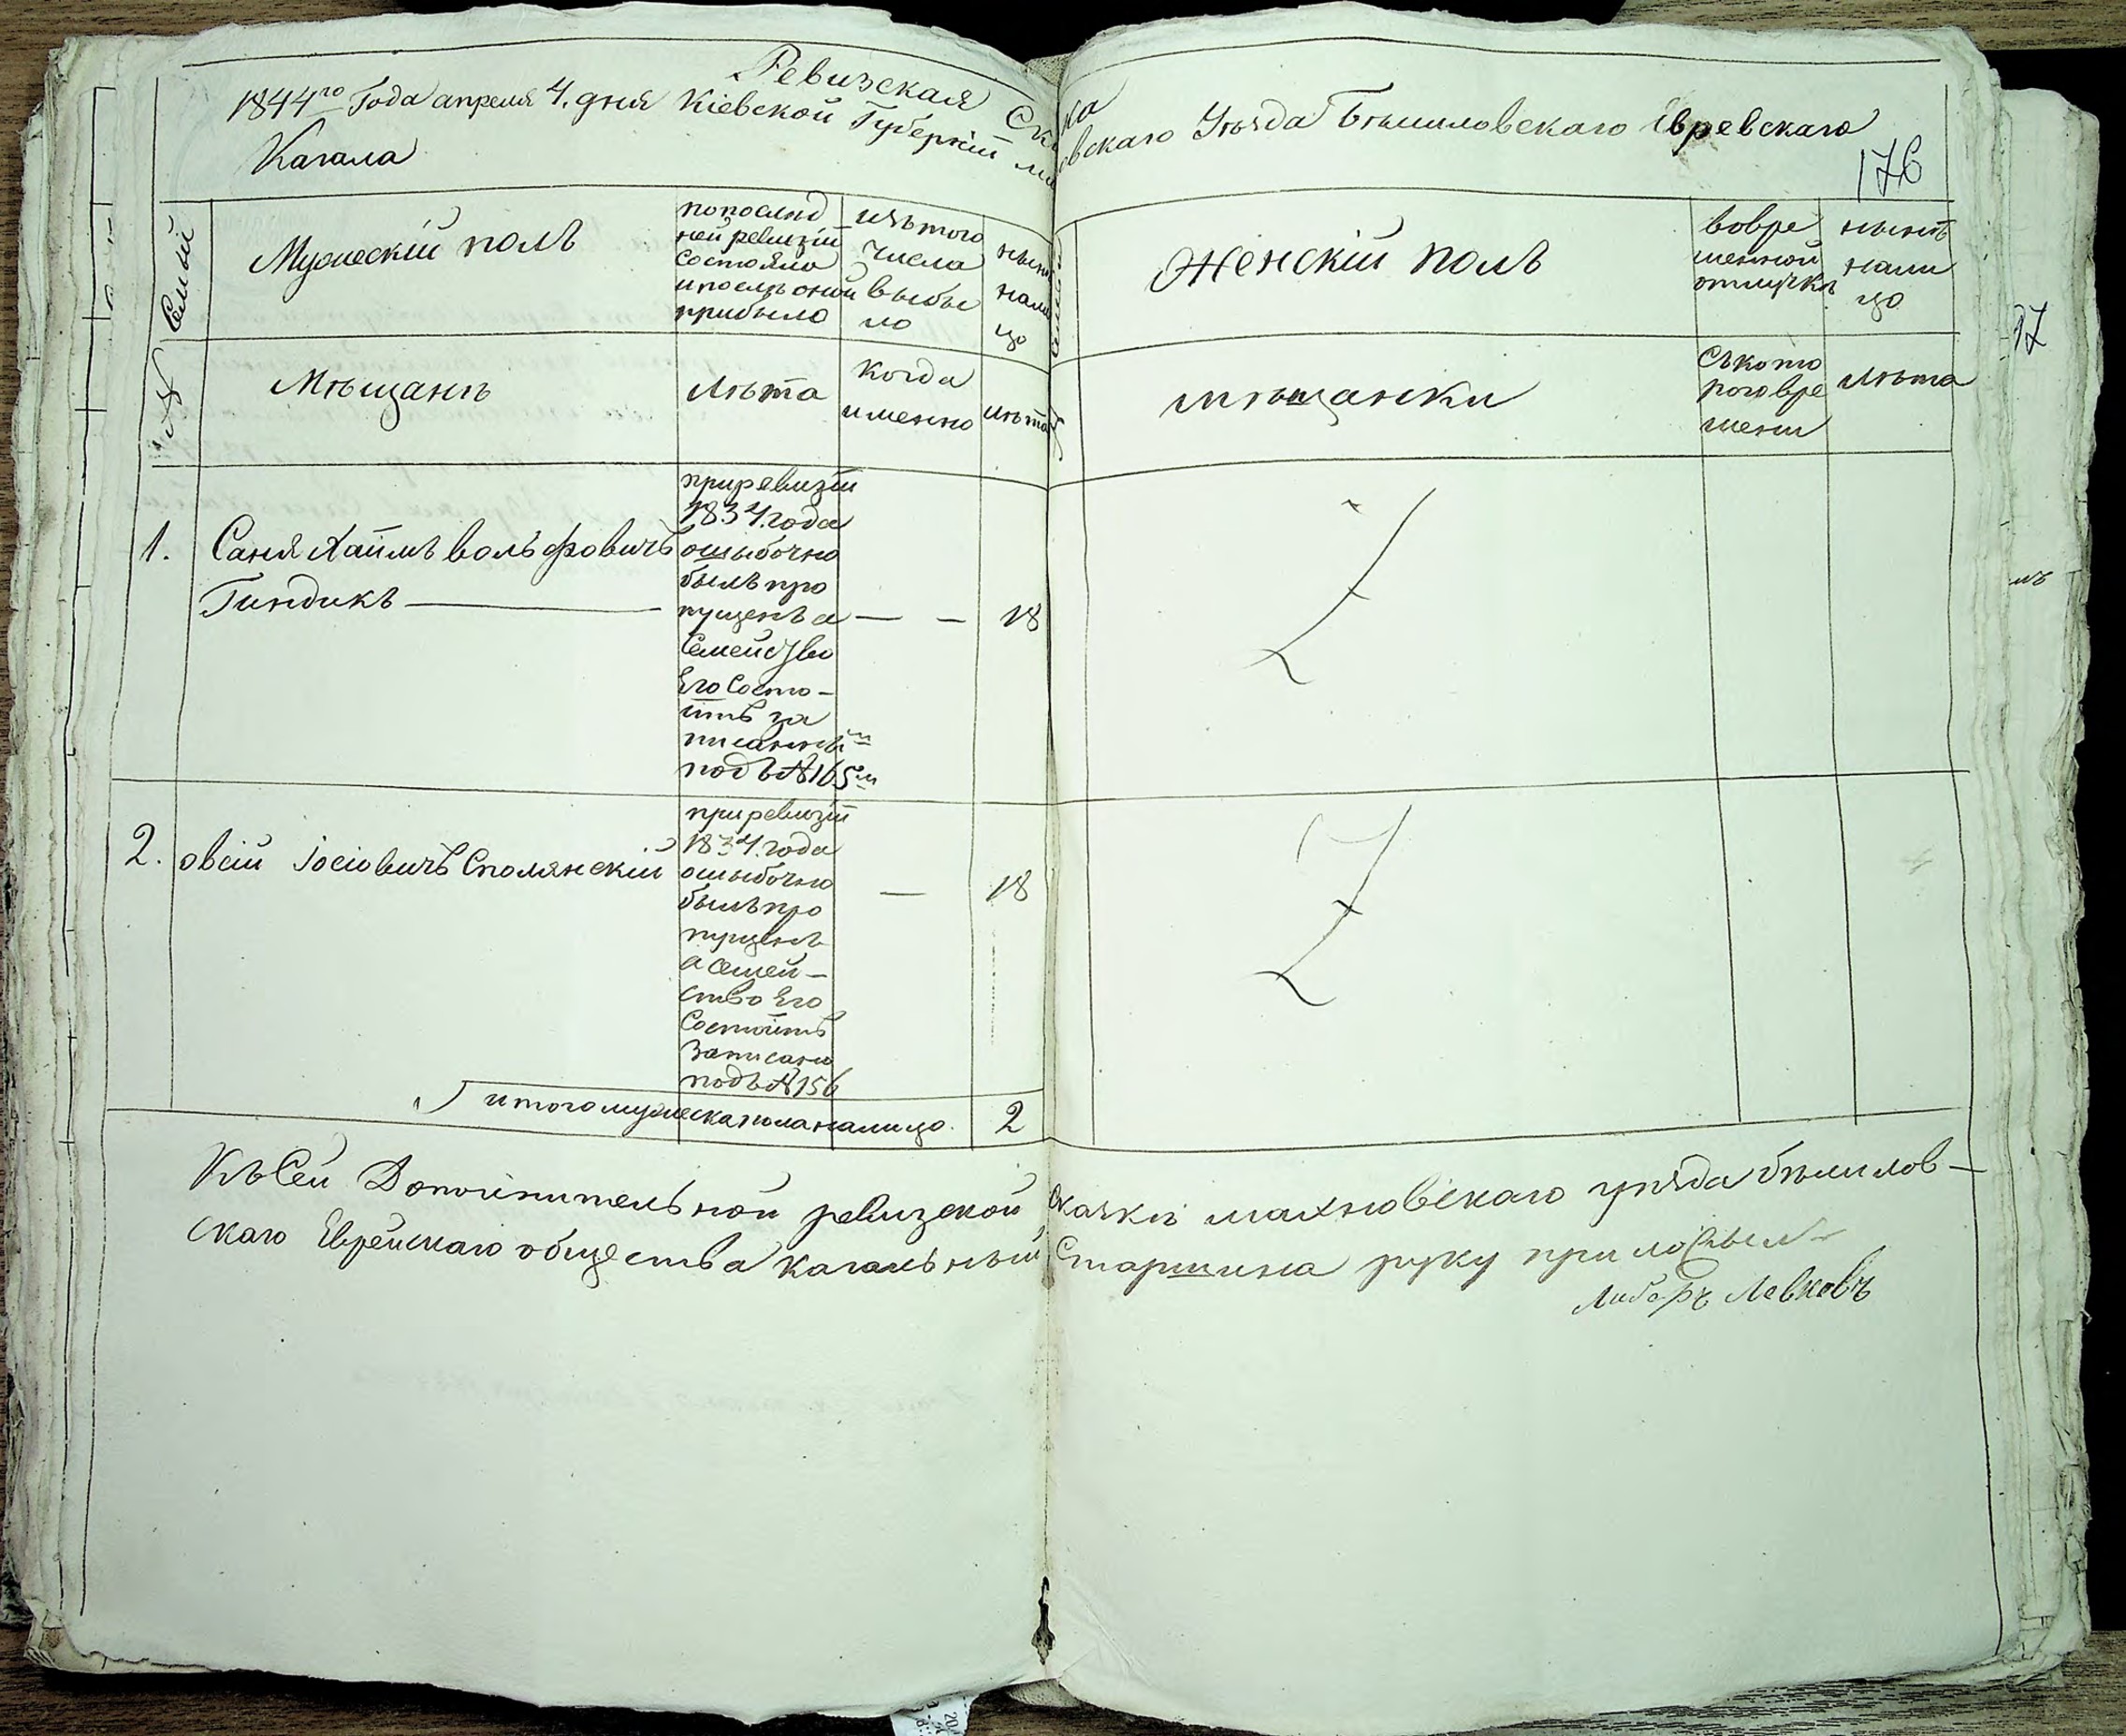 Ревизская Ска
1844го Года апреля 4. дня Кіевской Губерніи ма
вскаго Уѣзда Бѣлиловскаго Еврейскаго
Кагала
176
№ Семьи
Мужескій полъ
попослѣд
ней ревизіи
состояло
и послѣ оной
прибыло
изъ того
числа
выбы
ло
нынѣ
нали
цо
Женскій полъ
вовре
менной
отлучкѣ
нынѣ
нали
цо
Мѣщанъ
Лѣта
когда
именно
лѣта
мѣщанки
Съкото
раговре
мени
Лѣта
1. Саня Хаимъ вольфовичъ
Гиндикъ
приревизіи
1834. года
ошыбочно
былъ про
пущенъ а
семейство
Его состо-
итъ за
писаннымъ
подъ №165м
— — 18
2. овсій Іосіовичъ Сполянскій
приревизіи
1834. года
ошыбочно
былъ про
пущенъ
а семей-
ство Его
Состоитъ
Записано
подъ №156
— 18
итого мужеска пола налицо. 2
Къ Сей Дополнительной ревизской Скаски махновскаго уѣзда бѣлилов-
скаго Еврейскаго общества кагальный Старшина руку приложылъ
Либеръ Левковъ
37
лъ